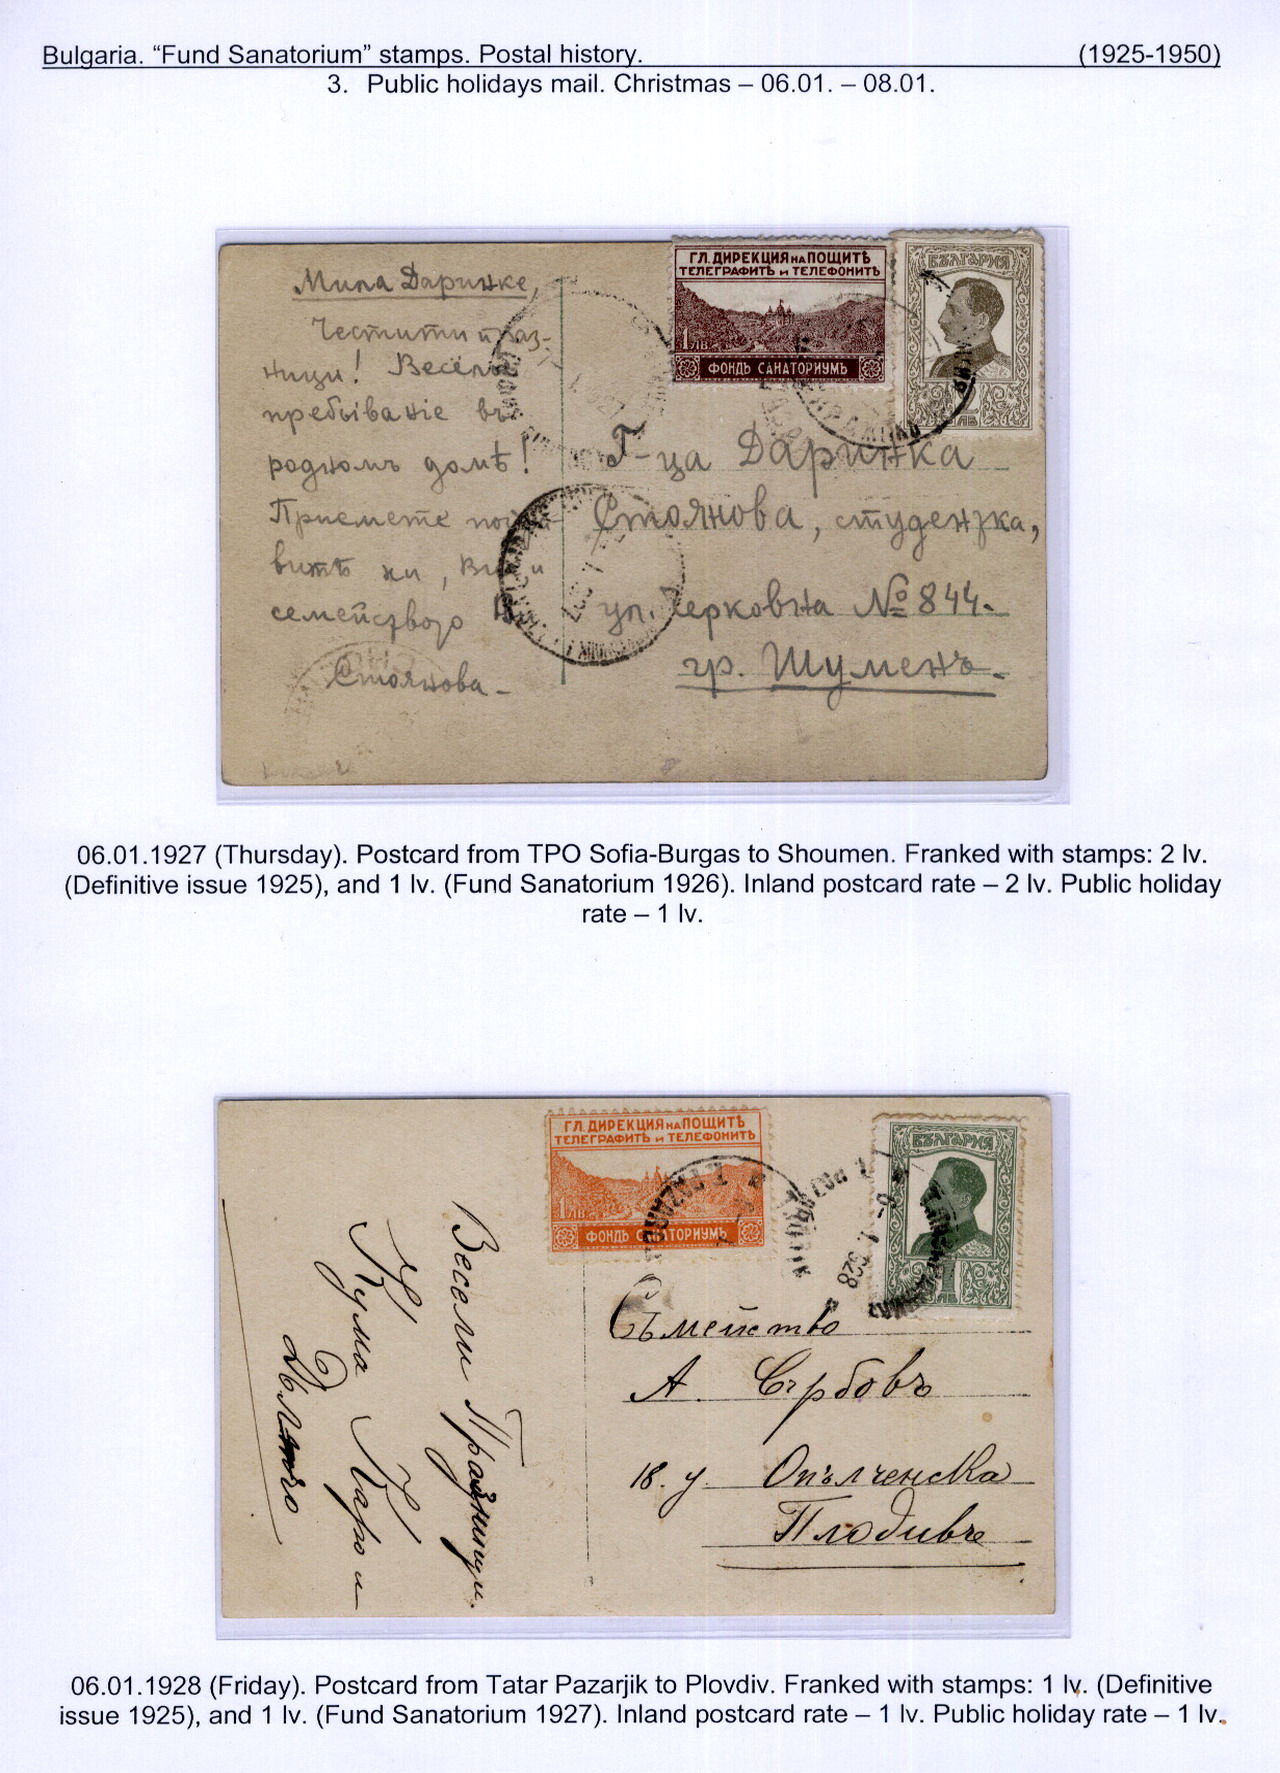 Bulgaria. “Fund Sanatorium” stamps. Postal history. (1925-1950)
3. Public holidays mail. Christmas – 06.01. – 08.01.
ГЛ. ДИРЕКЦИЯ НА ПОЩИТѢ
ТЕЛЕГРАФИТѢ И ТЕЛЕФОНИТѢ
1 ЛВ
ФОНДЪ САНАТОРИУМЪ
БЪЛГАРИЯ
ЛВ
Мила Даринке,
Честити праз-
ници! Весело
пребываніе въ
родномъ домѣ!
Приемете
витѣ ни, и
семейството
Стоянова
Г-ца Даринка
Стоянова, студентка,
ул. Черковна № 844.
гр. Шуменъ.
06.01.1927 (Thursday). Postcard from TPO Sofia-Burgas to Shoumen. Franked with stamps: 2 lv.
(Definitive issue 1925), and 1 lv. (Fund Sanatorium 1926). Inland postcard rate – 2 lv. Public holiday
rate – 1 lv.
ГЛ. ДИРЕКЦИЯ НА ПОЩИТѢ
ТЕЛЕГРАФИТѢ И ТЕЛЕФОНИТѢ
1 ЛВ
ФОНДЪ САНАТОРИУМЪ
БЪЛГАРИЯ
1 ЛВ
T. PAZARDJ
928
Весели Празници.
Кума
Съмейство
А. Сърбовъ
18. у. Опълченска
Пловдивъ
06.01.1928 (Friday). Postcard from Tatar Pazarjik to Plovdiv. Franked with stamps: 1 lv. (Definitive
issue 1925), and 1 lv. (Fund Sanatorium 1927). Inland postcard rate – 1 lv. Public holiday rate – 1 lv.